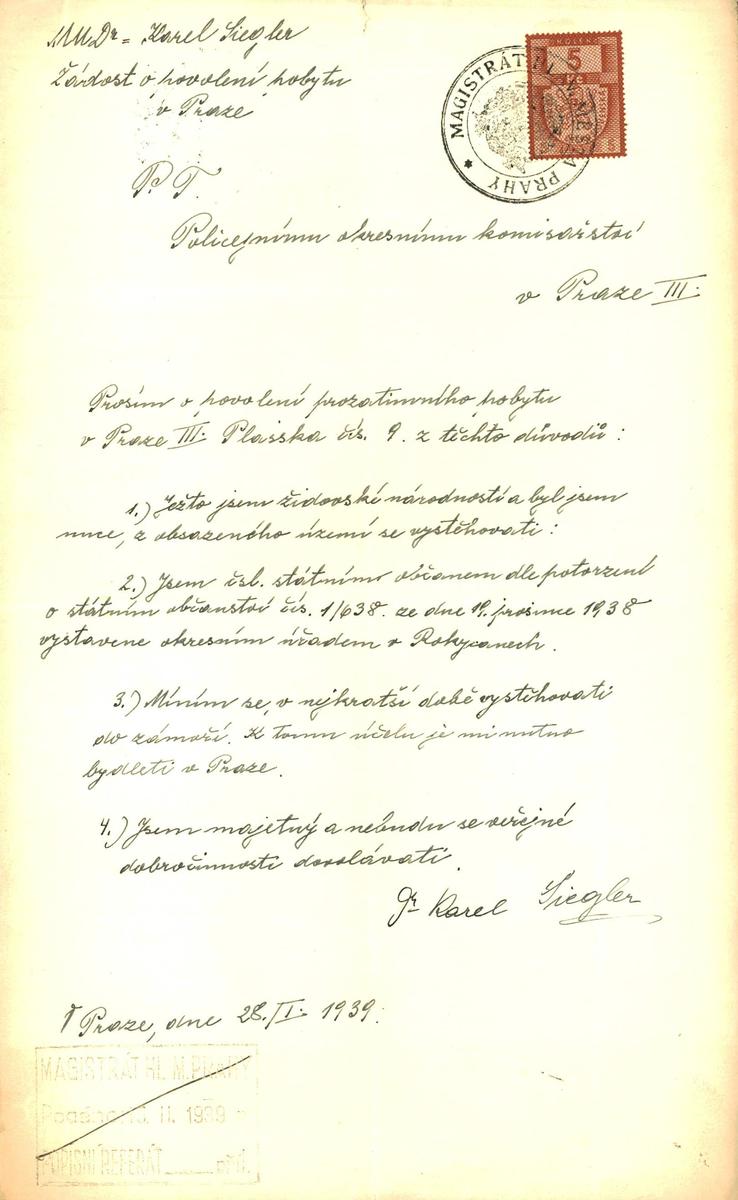 MUDr = Karel Siegler
Žádost o povolení pobytu
v Praze
MAGISTRÁT HL. MĚSTA PRAHY
KOLEK
5
P. T.
Policejnímu okresnímu komisařství
v Praze III.
Prosím o povolení prozatimního pobytu
v Praze III. Plasská čís. 9. z těchto důvodů :
1.) Ježto jsem židovské národnosti a byl jsem
nucen z obsazeného území se vystěhovati :
2.) Jsem čsl. státním občanem dle potvrzení
o státním občanství čís. 1/638. ze dne 19. prosince 1938
vystavene okresním úřadem v Rokycanech.
3.) Míním se v nejkratší době vystěhovati
do zámoří. K tomu účelu je mi nutno
bydleti v Praze.
4.) Jsem majetný a nebudu se veřejné
dobročinnosti dovolávati.
Dr Karel Siegler
V Praze, dne 28./I. 1939.
MAGISTRÁT HL. M. PRAHY
Podáno II. 1939
POPISNÍ REFERÁT příl.